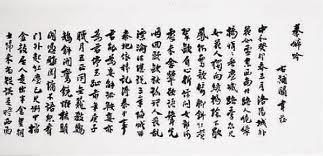 秦婦吟
右補闕韋莊
中和癸卯春三月洛陽城外
花如雪東西南北路人絕綠
楊悄悄香塵滅路旁忽見如花
女郎何處來含顰欲語聲先咽
回頭斂袂謝行人喪亂漂
淪何堪說三年陷賊留
秦地依稀記得秦中事
君能為妾解金鞍妾亦
與君停玉趾前年庚子
臘月五正閉金籠教鸚鵡
斜開鸞鏡懶梳頭
閑憑雕欄慵不語忽看
門外起紅塵已見街中擂
金鼓居人走出半倉惶朝
士歸來尚疑誤是時西面